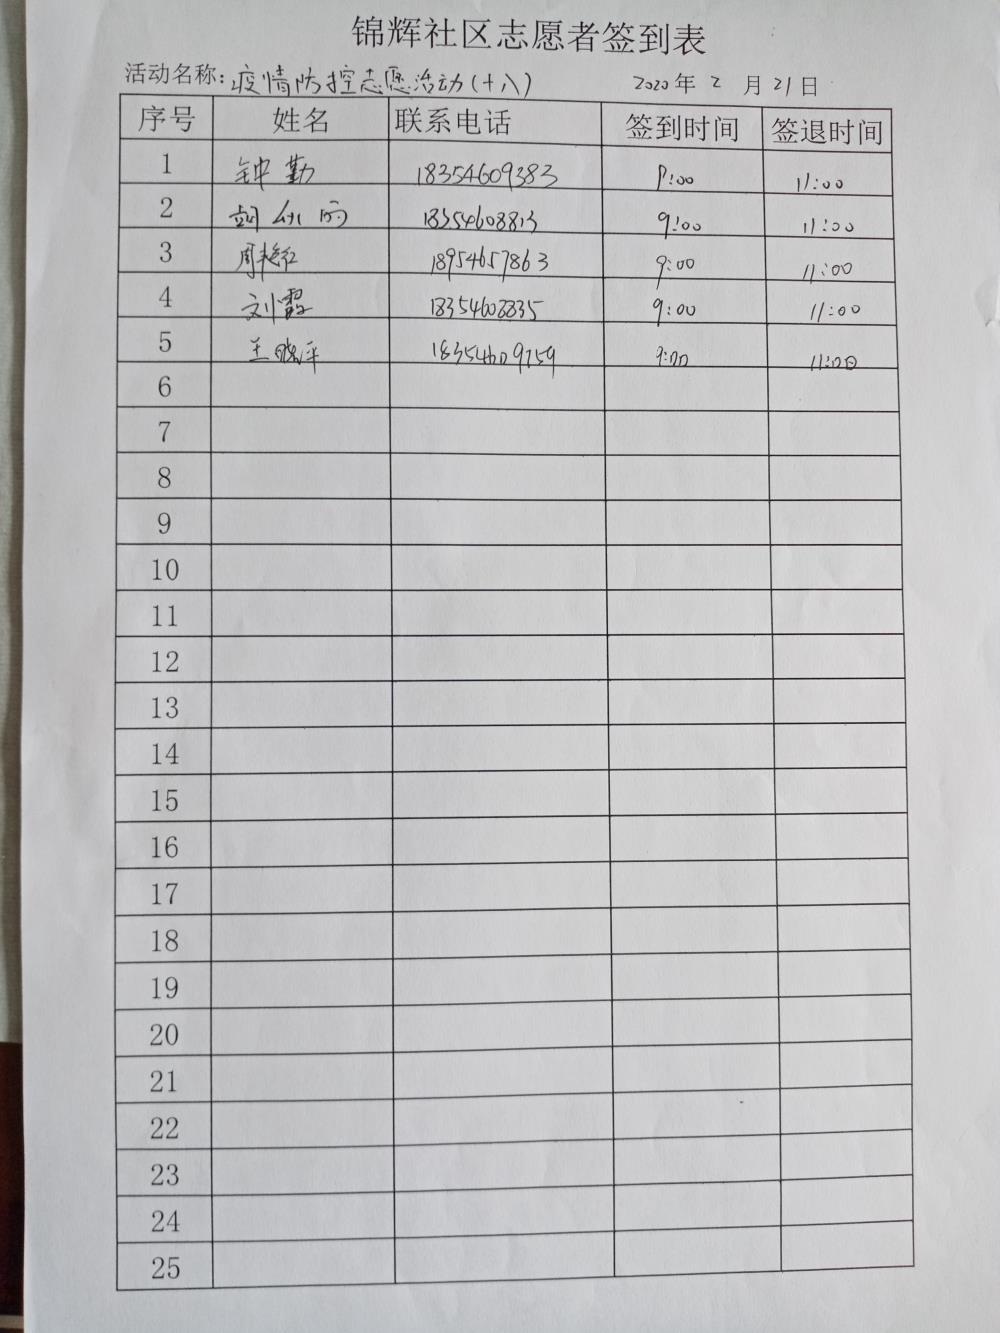 锦辉社区志愿者签到表
活动名称:疫情防控志愿活动(十八) 2020年 2 月 21 日
序号 姓名 联系电话 签到时间 签退时间
1 钟勤 18354609383 9:00 11:00
2 18354608813 9:00 11:00
3 周艳红 18954657863 9:00 11:00
4 刘霞 18354608835 9:00 11:00
5 王晓平 18354609759 9:00 11:00
6
7
8
9
10
11
12
13
14
15
16
17
18
19
20
21
22
23
24
25